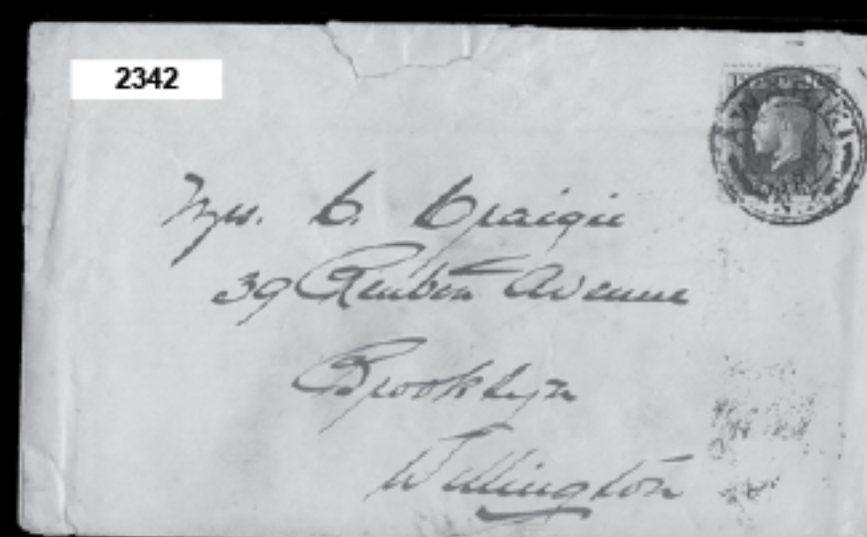 2342
Mrs. C. Craigie
39 Reuben Avenue
Brooklyn
Wellington